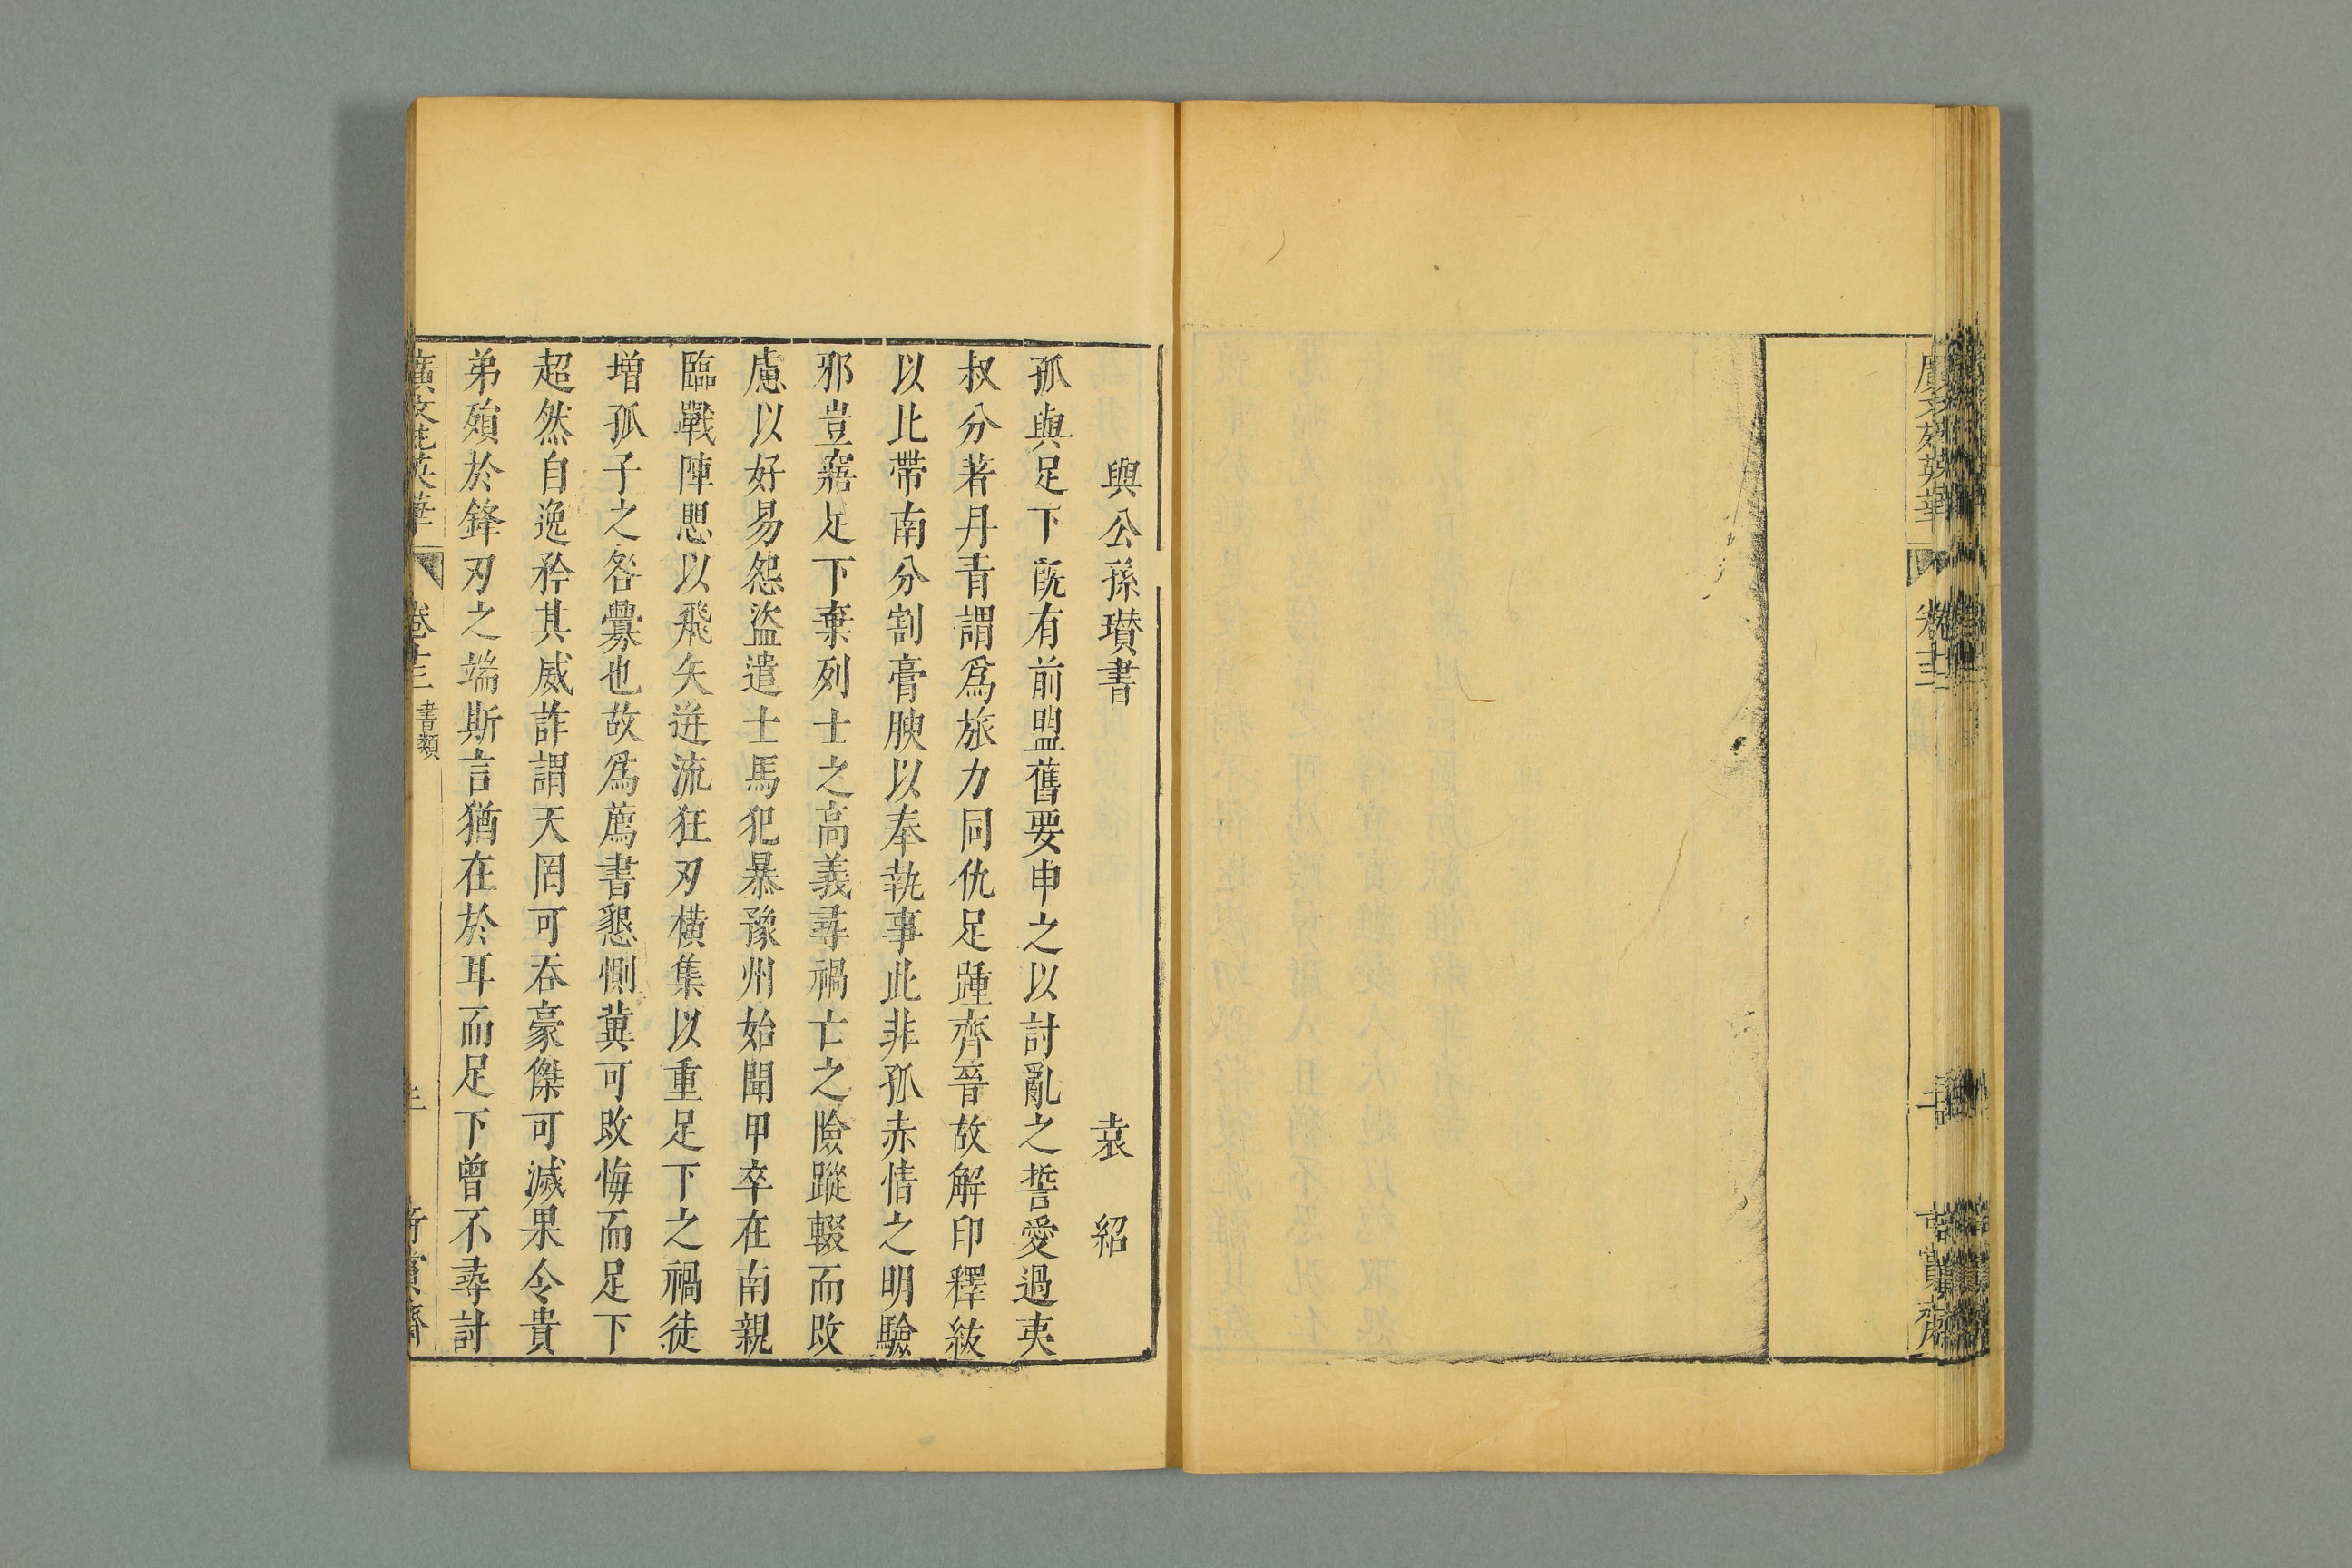 廣文苑英華
卷十三
與公孫瓚書 袁紹
孤與足下旣有前盟舊要申之以討亂之誓愛過夷
叔分著丹青謂爲旅力同仇足踵齊晉故解印釋紱
以比帶南分割膏腴以奉執事此非孤赤情之明驗
邪豈寤足下棄列士之高義尋禍亡之險蹤輟而改
慮以好易怨盜遣士馬犯暴豫州始聞甲卒在南親
臨戰陣思以飛矢迸流狂刃橫集以重足下之禍徒
增孤子之咎釁也故爲薦書懇惻冀可改悔而足下
超然自逸矜其威詐謂天罔可吞豪傑可滅果令貴
弟殞於鋒刃之端斯言猶在於耳而足下曾不尋討
廣文苑英華 卷十三 書類